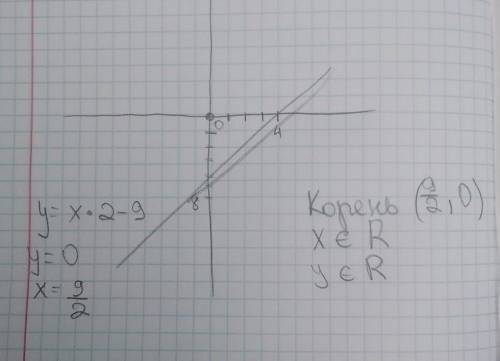 0
4
8
y = x · 2 - 9
y = 0
x = 9/2
Корень (9/2, 0)
x ∈ R
y ∈ R